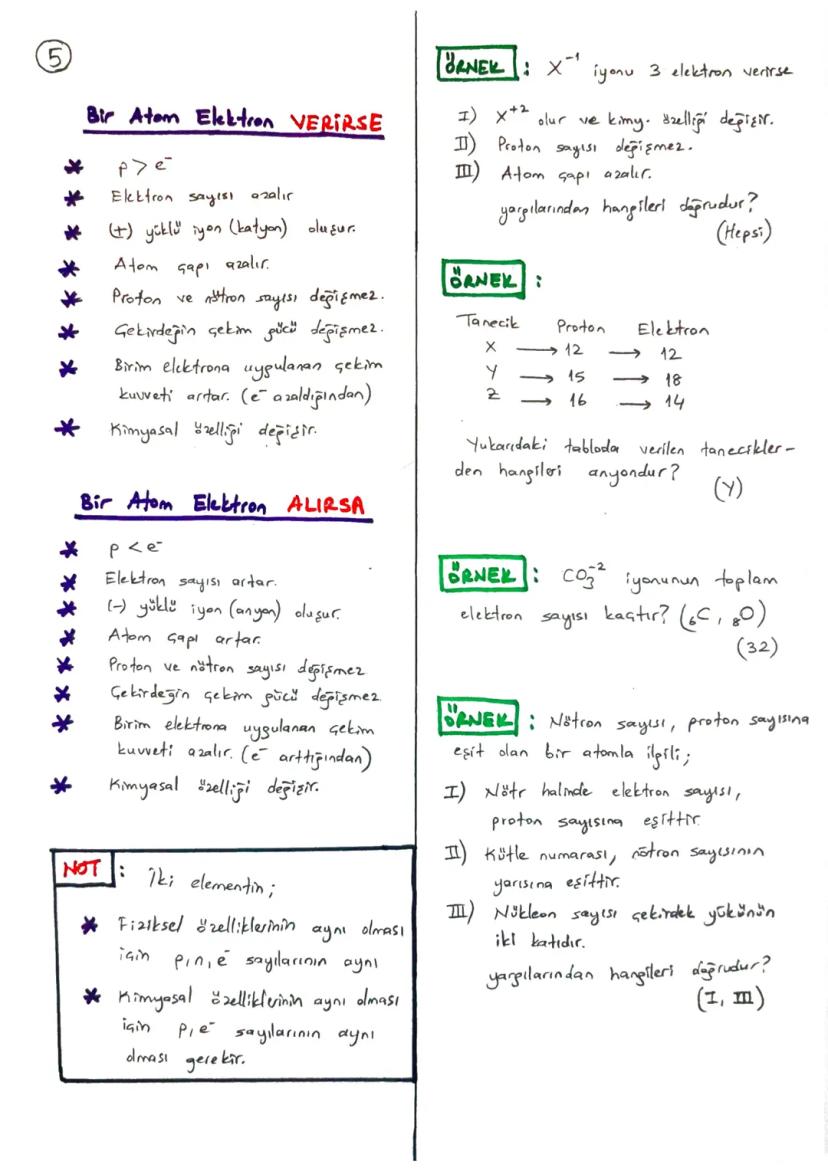 5
Bir Atom Elektron VERİRSE
* p > e⁻
* Elektron sayısı azalır
* (+) yüklü iyon (katyon) oluşur.
* Atom çapı azalır.
* Proton ve nötron sayısı değişmez.
* Çekirdeğin çekim gücü değişmez.
* Birim elektrona uygulanan çekim
kuvveti artar. (e⁻ azaldığından)
* Kimyasal özelliği değişir.
Bir Atom Elektron ALIRSA
* p < e⁻
* Elektron sayısı artar.
* (-) yüklü iyon (anyon) oluşur.
* Atom çapı artar.
* Proton ve nötron sayısı değişmez
* Çekirdeğin çekim gücü değişmez
* Birim elektrona uygulanan çekim
kuvveti azalır. (e⁻ arttığından)
* Kimyasal özelliği değişir.
NOT : İki elementin;
* Fiziksel özelliklerinin aynı olması
için p,n,e⁻ sayılarının aynı
* Kimyasal özelliklerinin aynı olması
için p,e⁻ sayılarının aynı
olması gerekir.
ÖRNEK : X⁻¹ iyonu 3 elektron verirse
I) X⁺² olur ve kimy. özelliği değişir.
II) Proton sayısı değişmez.
III) Atom çapı azalır.
yargılarından hangileri doğrudur?
(Hepsi)
ÖRNEK :
Tanecik Proton Elektron
X → 12 → 12
Y → 15 → 18
Z → 16 → 14
Yukarıdaki tabloda verilen tanecikler-
den hangileri anyondur?
(Y)
ÖRNEK : CO₃⁻² iyonunun toplam
elektron sayısı kaçtır? (₆C, ₈O)
(32)
ÖRNEK : Nötron sayısı, proton sayısına
eşit olan bir atomla ilgili;
I) Nötr halinde elektron sayısı,
proton sayısına eşittir.
II) Kütle numarası, nötron sayısının
yarısına eşittir.
III) Nükleon sayısı çekirdek yükünün
iki katıdır.
yargılarından hangileri doğrudur?
(I, III)